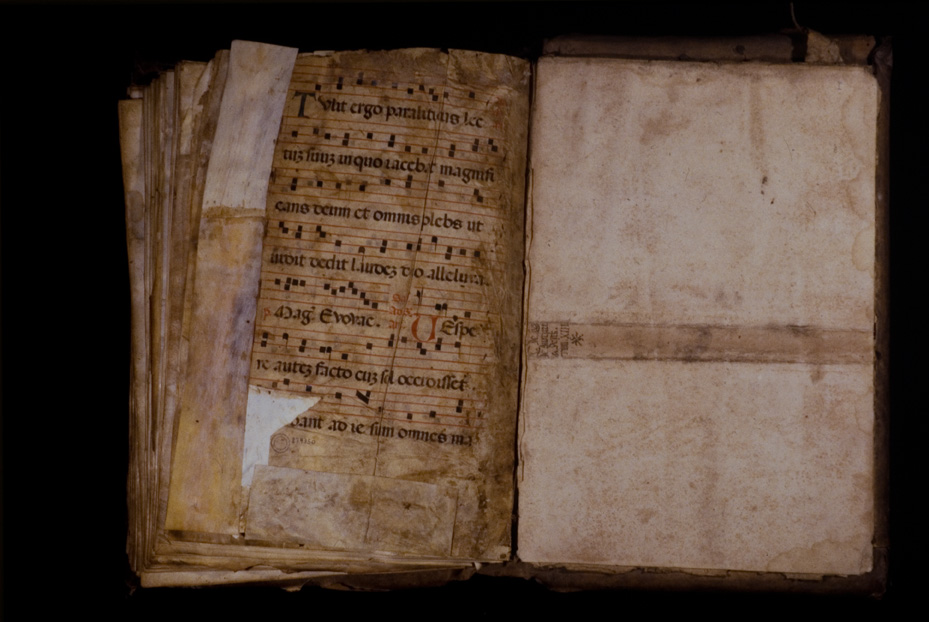 Tulit ergo paraliticus lec
tuz suuz in quo iacebat magnifi
cans deum et omnis plebs ut
uidit dedit laudez deo alleluya.
p Mag Evovae. Uespe
re autez facto cuz sol occidisset.
bant ad ie sum omnes ma